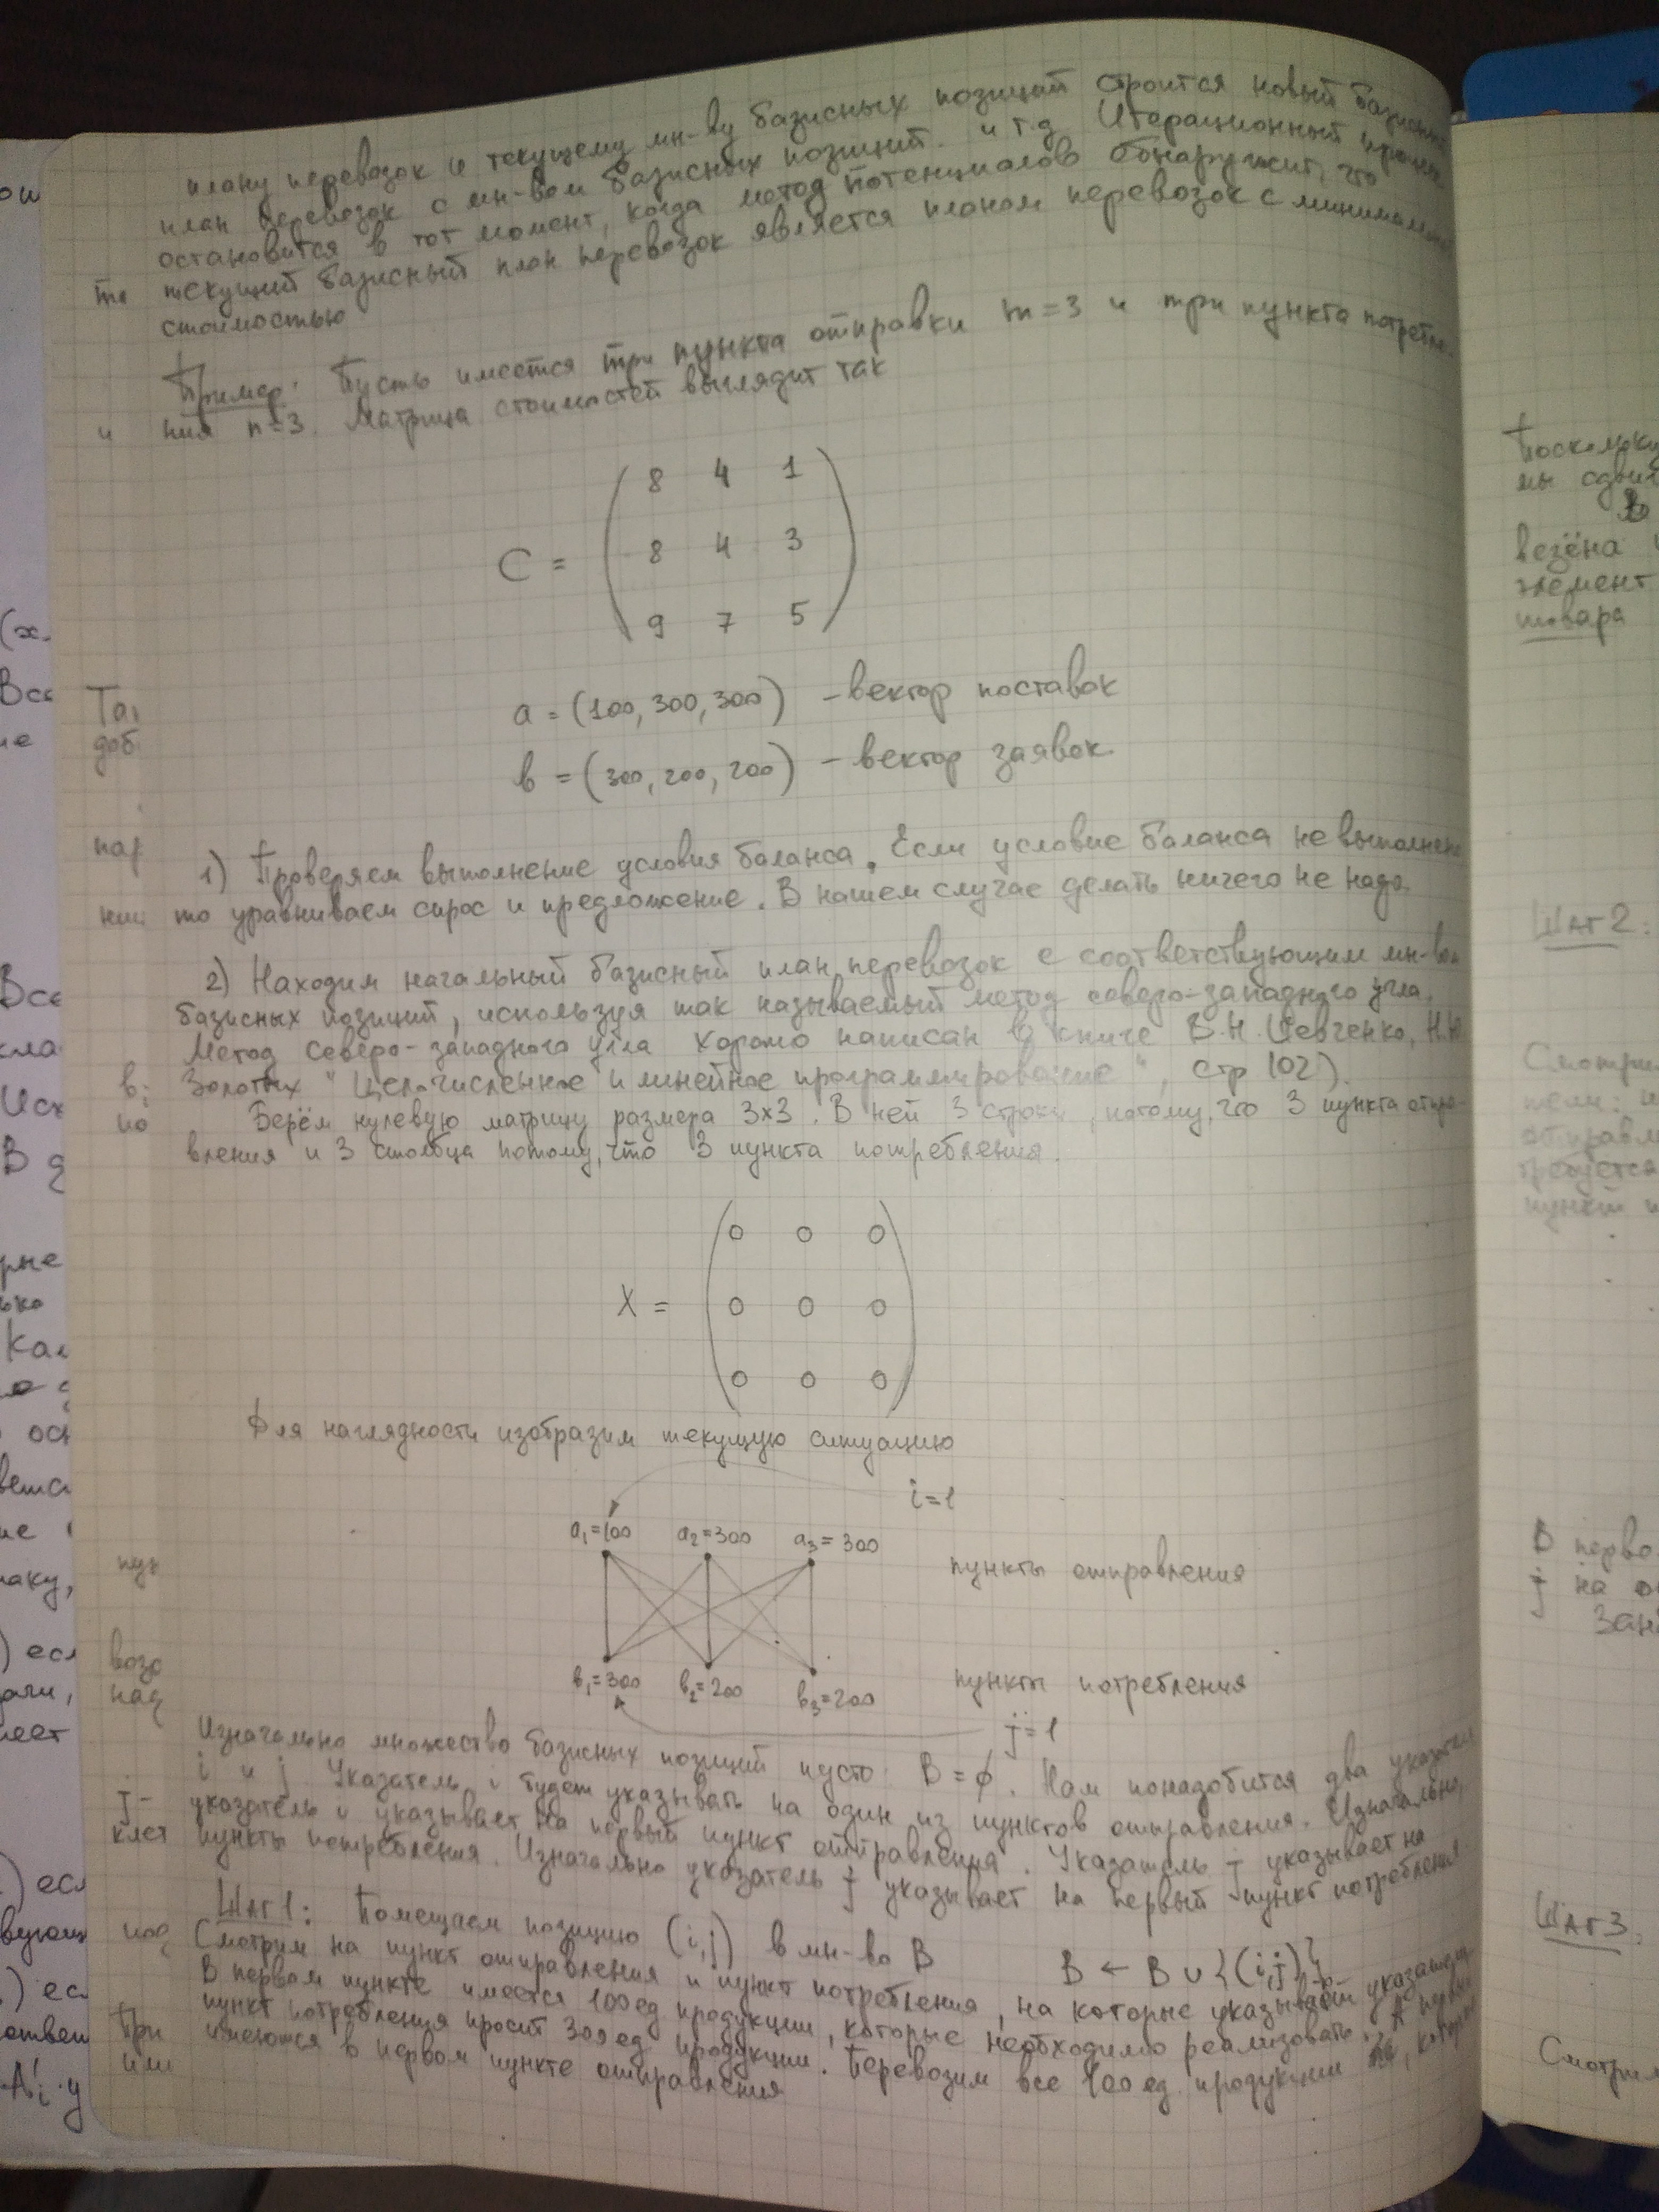 плану перевозок и текущему мн-ву базисных позиций строится новый базисный
план перевозок с мн-вом базисных позиций и т.д. Итерационный процесс
остановится в тот момент, когда метод потенциалов обнаружит, что
текущий базисный план перевозок является планом перевозок с минимальной
стоимостью
Пример: Пусть имеется три пункта отправки m=3 и три пункта потребле-
ния n=3. Матрица стоимостей выглядит так
C = ( 8 4 1
8 4 3
9 7 5 )
a = (100, 300, 300) - вектор поставок
b = (300, 200, 200) - вектор заявок
1) Проверяем выполнение условия баланса. Если условие баланса не выполнено
то уравниваем спрос и предложение. В нашем случае делать ничего не надо.
2) Находим начальный базисный план перевозок с соответствующим мн-вом
базисных позиций, используя так называемый метод северо-западного угла.
Метод северо-западного угла хорошо написан в книге В.Н. Шевченко, Н.Ю.
Золотых "Целочисленное и линейное программирование", стр 102).
Берём нулевую матрицу размера 3x3. В ней 3 строки, потому, что 3 пункта отпра-
вления и 3 столбца потому, что 3 пункта потребления.
X = ( 0 0 0
0 0 0
0 0 0 )
Для наглядности изобразим текущую ситуацию
i=1
a₁=100 a₂=300 a₃=300
пункты отправления
b₁=300 b₂=200 b₃=200 пункты потребления
j=1
Изначально множество базисных позиций пусто B=∅. Нам понадобится два указателя
i и j. Указатель i будет указывать на один из пунктов отправления. Изначально,
указатель i указывает на первый пункт отправления. Указатель j указывает на
пункты потребления. Изначально указатель j указывает на первый пункт потребления.
Шаг 1: Помещаем позицию (i,j) в мн-во B B ← B ∪ {(i,j)}
Смотрим на пункт отправления и пункт потребления, на которые указывают указатели.
В первом пункте имеется 100 ед продукции, которые необходимо реализовать. А первый
пункт потребления просит 300 ед продукции. Перевозим все 100 ед. продукции, которые
имеются в первом пункте отправления
Поскольку
мы сдвиг
везёна
элемент
товара
Шаг 2:
Смотрим
В перво
j на
Шаг 3.
Смотрим